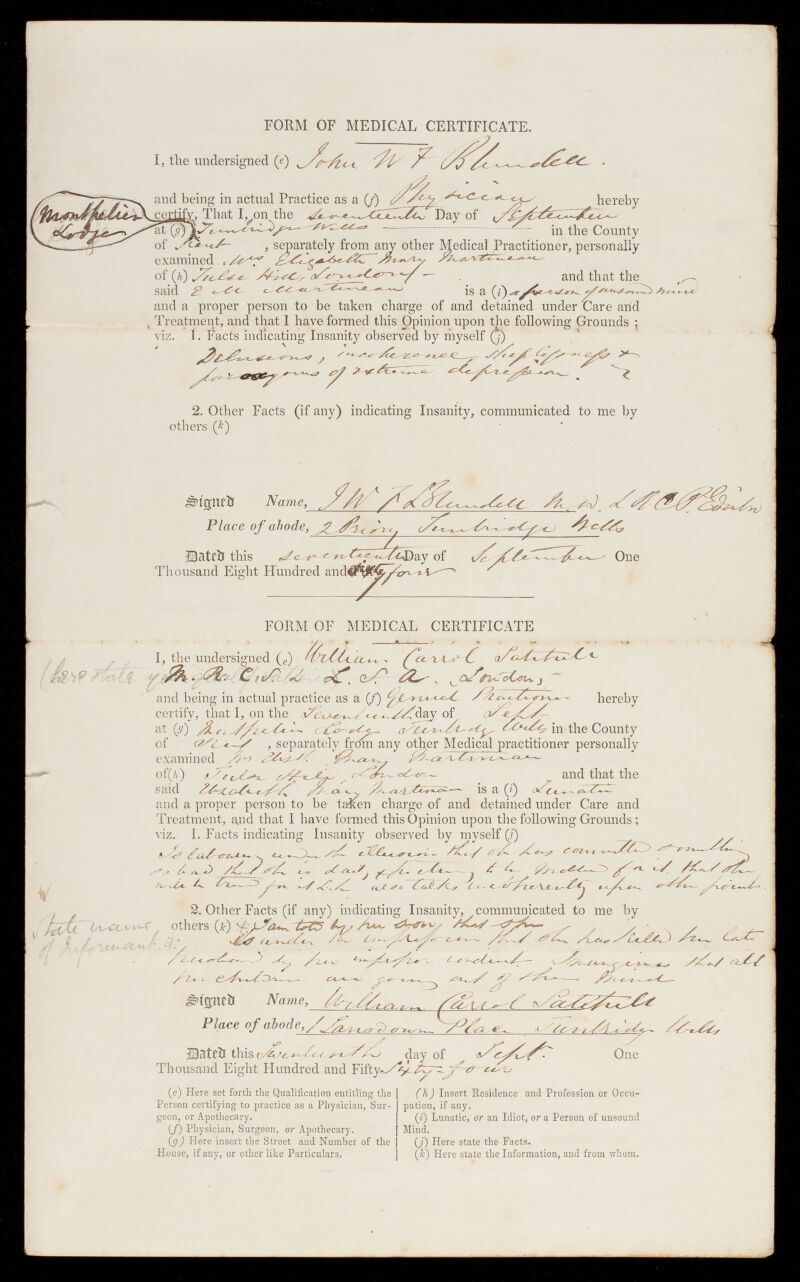 FORM OF MEDICAL CERTIFICATE.
I, the undersigned (e) John W F Blundell .
and being in actual Practice as a (f) Physician hereby
Montpelier
Lodge
certify, That I, on the seventeenth Day of September
at (g) Tunbridge Wells in the County
of Kent , separately from any other Medical Practitioner, personally
examined Mrs Elizabeth Mary Martineau
of (h) Tulse Hill, London and that the
said E M Martineau is a (i) a person of unsound mind
and a proper person to be taken charge of and detained under Care and
Treatment, and that I have formed this Opinion upon the following Grounds ;
viz. 1. Facts indicating Insanity observed by myself (j)
Delusions, incoherence, Sleeplessness &
paroxysms of extreme depression.
2. Other Facts (if any) indicating Insanity, communicated to me by
others (k)
Signed Name, J W F Blundell M.D. L R C P. Edinbr
Place of abode, 2 Priory Tunbridge Wells
Dated this seventeenth Day of September One
Thousand Eight Hundred and sixty four
FORM OF MEDICAL CERTIFICATE
I, the undersigned (e) William Carrol Satchell
(here state
M. R. C. S. L. S. A. London,
and being in actual practice as a (f) General Practitioner hereby
certify, that I, on the Seventeenth day of Sept
at (g) Montpelier Lodge Tunbridge Wells in the County
of Kent , separately from any other Medical practitioner personally
examined Mrs Elizth Mary Martineau
of (h) Tulse Hill London and that the
said Elizabeth Mary Martineau is a (i) Lunatic
and a proper person to be taken charge of and detained under Care and
Treatment, and that I have formed this Opinion upon the following Grounds ;
viz. 1. Facts indicating Insanity observed by myself (j)
Is labouring under the illusion that she has committed something
so bad that she is to be that she
will be tried for it & also talks incoherently upon other points.
2. Other Facts (if any) indicating Insanity, communicated to me by
State name
of Informant
others (k) I am told by her Son that she
is under the impression that she has killed her late
husband by her improper conduct Imagines that all
her children are going out of their Mind
Signed Name, William Carrol Satchell
Place of abode, 1 Lansdown Place, Tunbridge Wells
Dated this Seventeenth day of Sept. One
Thousand Eight Hundred and Fifty Sixty-four
(e) Here set forth the Qualification entitling the
Person certifying to practice as a Physician, Sur-
geon, or Apothecary.
(f) Physician, Surgeon, or Apothecary.
(g) Here insert the Street and Number of the
House, if any, or other like Particulars.
(h) Insert Residence and Profession or Occu-
pation, if any.
(i) Lunatic, or an Idiot, or a Person of unsound
Mind.
(j) Here state the Facts.
(k) Here state the Information, and from whom.